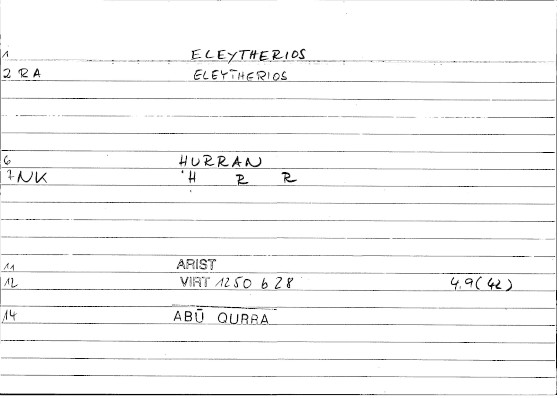 1 ELEYTHERIOS
2 RA ELEYTHERIOS
6 HURRAN
7 NK 'H R R
11 ARIST
12 VIRT 1250 b 28 4,9(42)
14 ABŪ QURRA